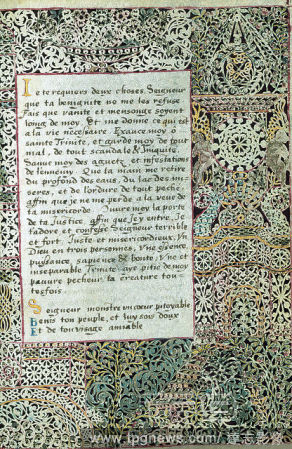 Je te requiers deux choses, Seigneur
que ta benignité ne me les refuse
Fais que vanité et mensonge soyent
loing de moy, Et me donne ce qui est
a la vie necessaire. Exauce moy ô
sainte Trinité, et garde moy de tout
mal, de tout scandale & Iniquité.
Sauue moy des aguetz et infestations
de lennemy Que ta main me retire
du profond des eaus, du lac de mi
seres, et de lordure de tout peché
affin que je ne me perde a la veue de
ta misericorde. Ouure moy la porte
de ta Justice affin que j'ey entre, Je
t'adore et confesse Seigneur terrible
et fort, Juste et misericordieux. Vn
Dieu en trois personnes, Vne essence
puyssance, sapience & bonté, Vne et
inseparable Trinité aye pitié de moy
pauure pecheur ta creature tou-
tesfois.
Seigneur monstre un cœur pitoyable
Benis ton peuple, et luy sois doux
Et de ton visage amiable
www.tpgnews.com/ 達志影像